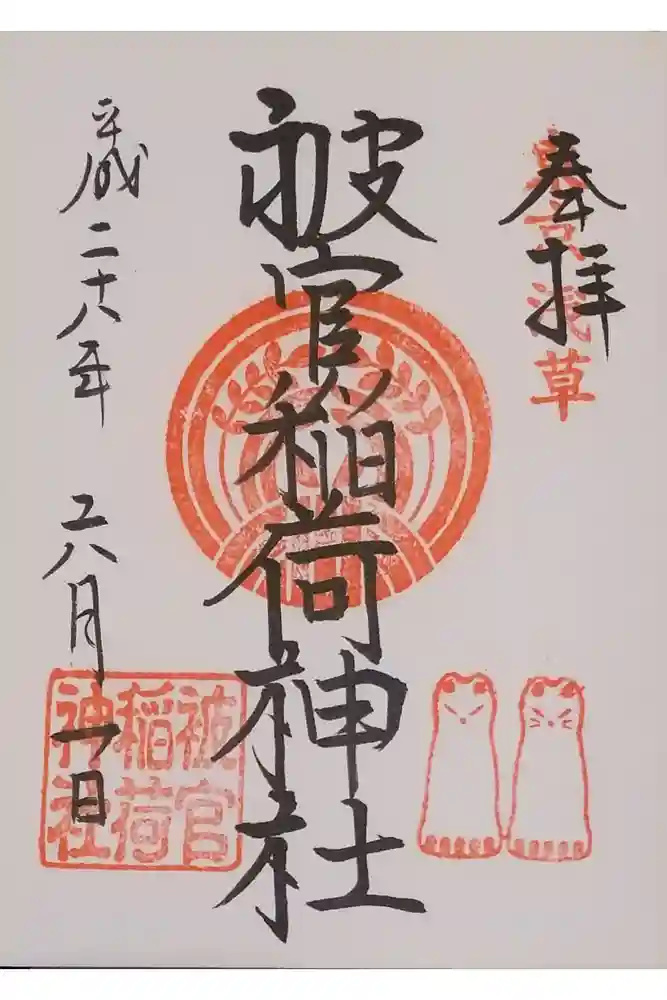 奉拝
東京浅草
被官稲荷神社
平成二十八年 六月一日
被官
稲荷
神社